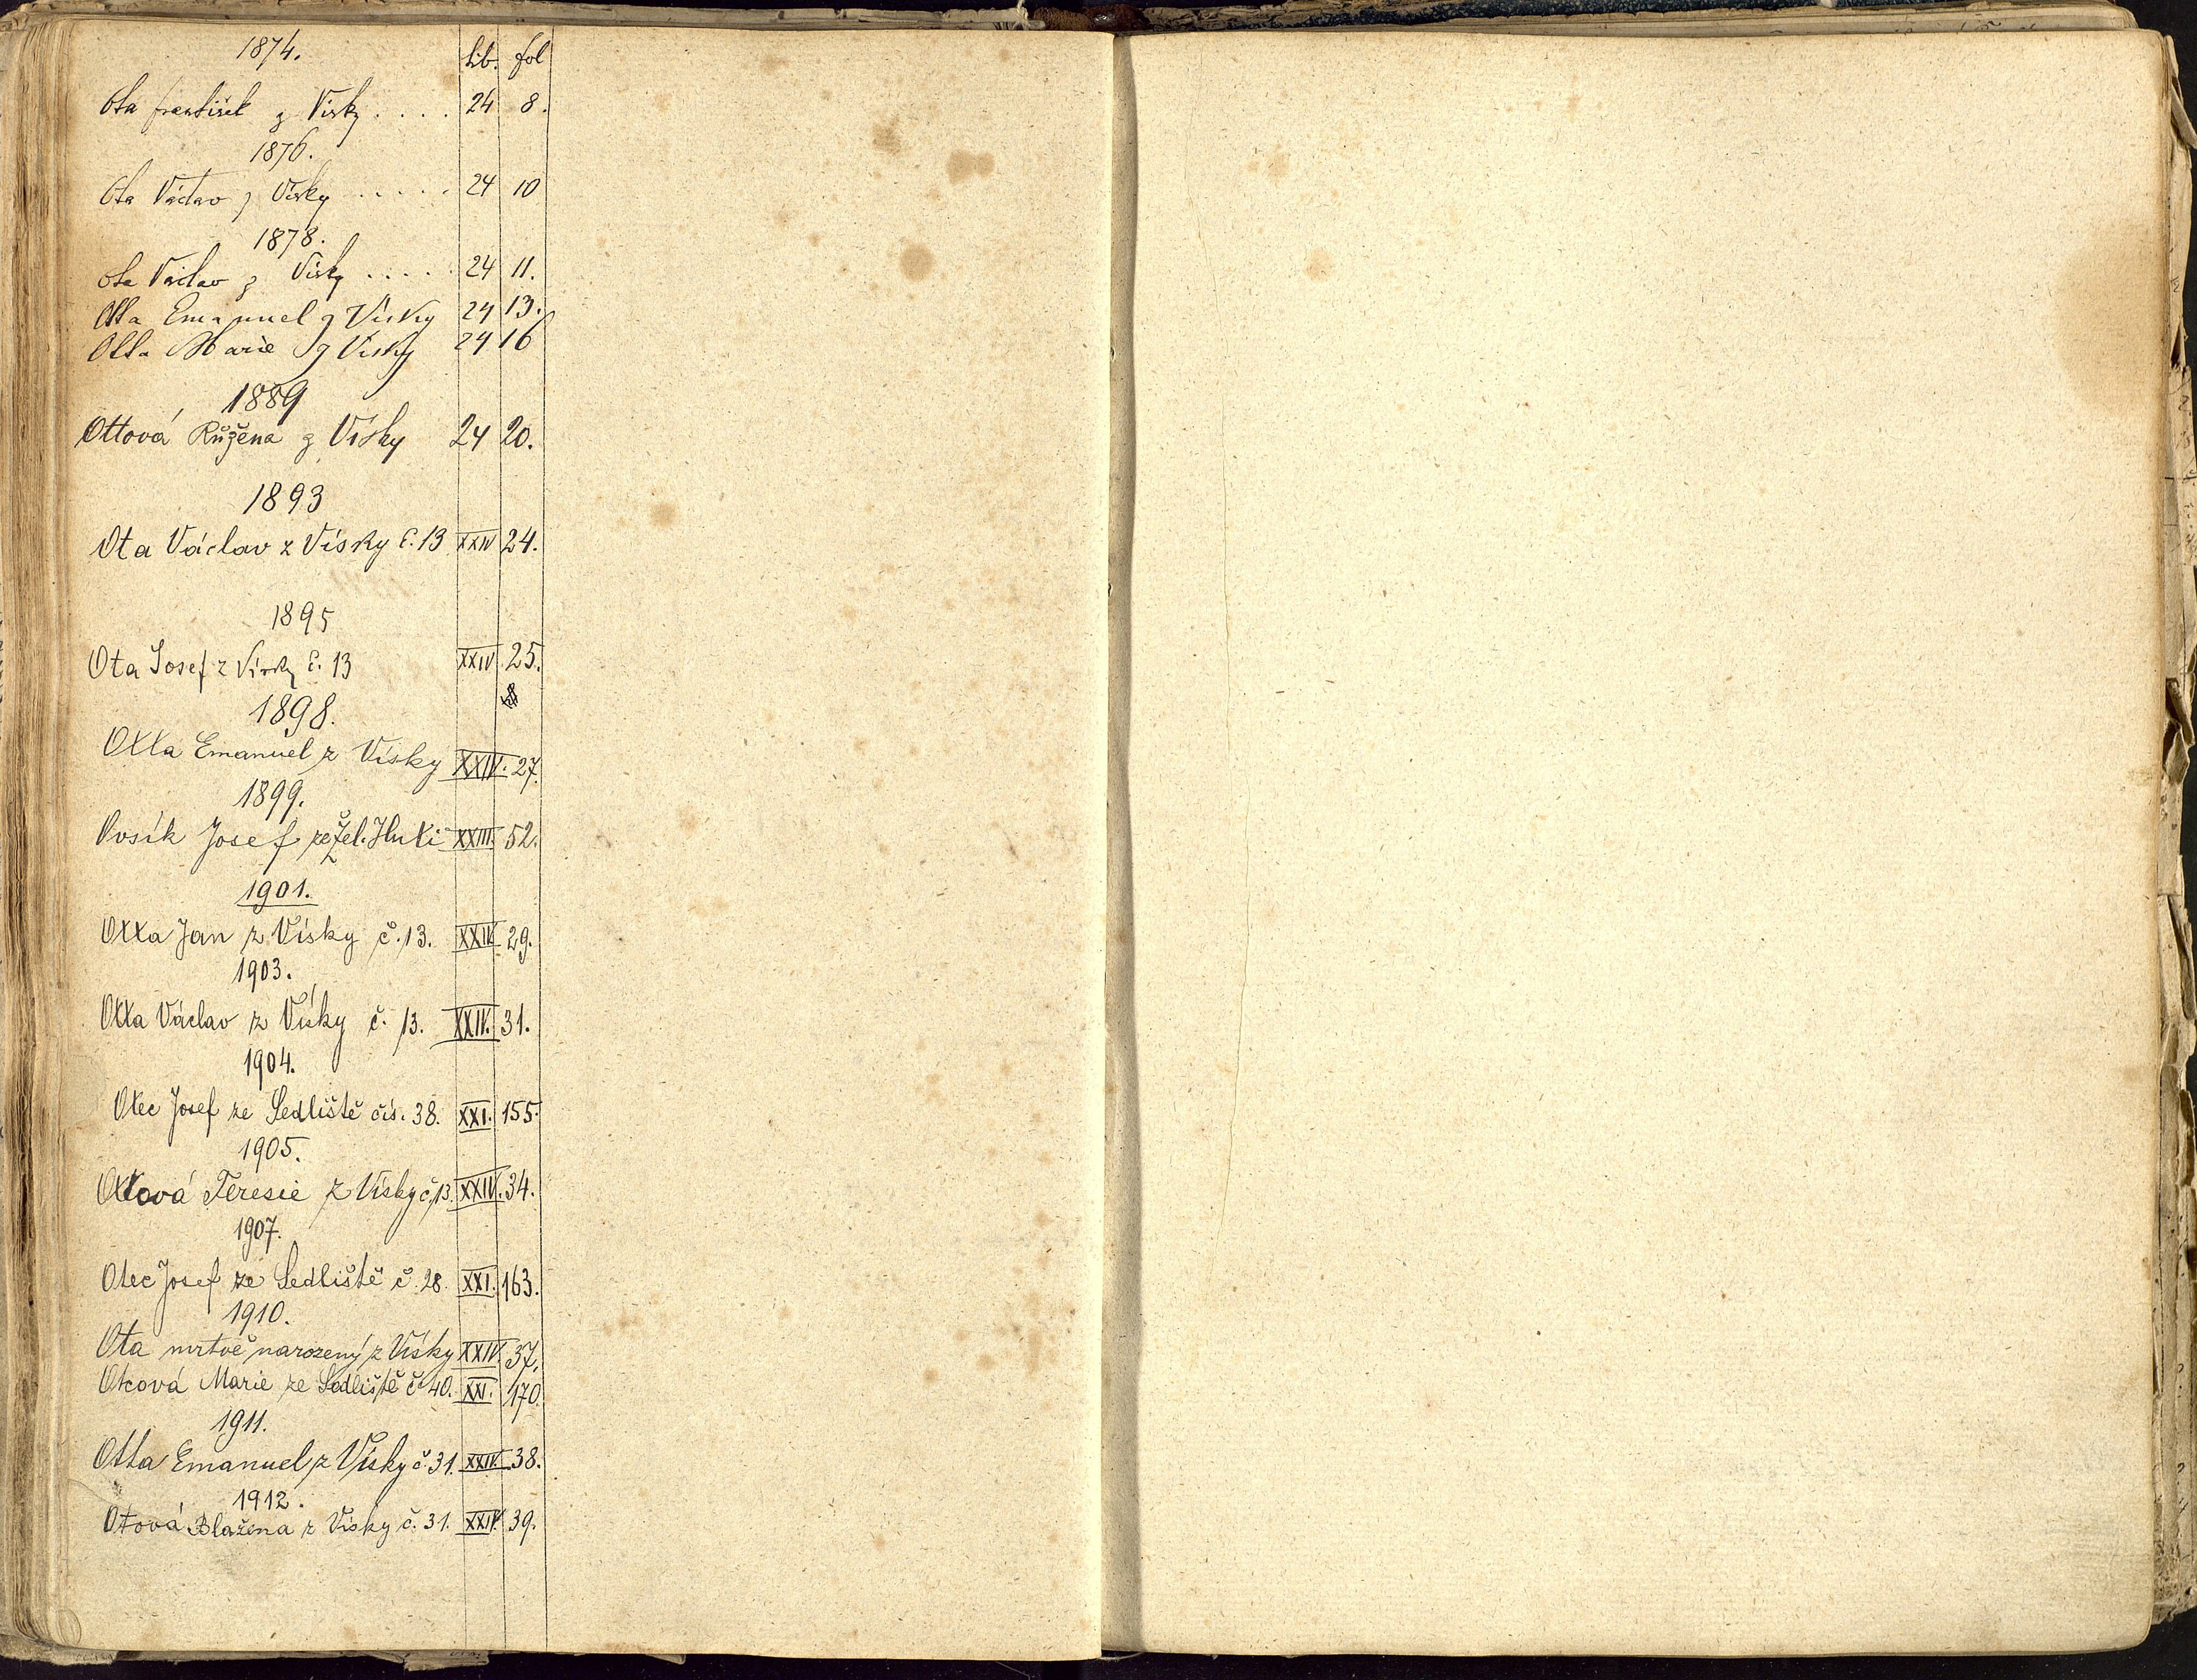 1874. Lib. fol
Ota František z Vísky . . . . 24 8.
1876.
Ota Václav z Vísky . . . . . 24 10
1878.
Ota Václav z Vísky . . . . . 24 11.
Otta Emanuel z Vísky 24 13.
Otta Marie z Vísky 24 16
1889
Ottová Růžena z Vísky 24 20.
1893
Ota Václav z Vísky č. 13 XXIV 24.
1895
Ota Josef z Vísky č. 13 XXIV. 25.
1898.
Otta Emanuel z Vísky XXIV. 27.
1899.
Ovsík Josef ze Žel. Huti XXIII. 52.
1901.
Otta Jan z Vísky č. 13. XXIV. 29.
1903.
Otta Václav z Vísky č. 13. XXIV. 31.
1904.
Otec Josef ze Sedliště čís. 38. XXI. 155.
1905.
Ottová Teresie z Vísky č. 13. XXIV. 34.
1907.
Otec Josef ze Sedliště č. 28. XXI. 163.
1910.
Ota mrtvě narozený z Vísky XXIV. 37.
Otcová Marie ze Sedliště č. 40. XXI. 170.
1911.
Otta Emanuel z Vísky č. 31. XXIV. 38.
1912.
Otová Blažena z Vísky č. 31. XXIV. 39.